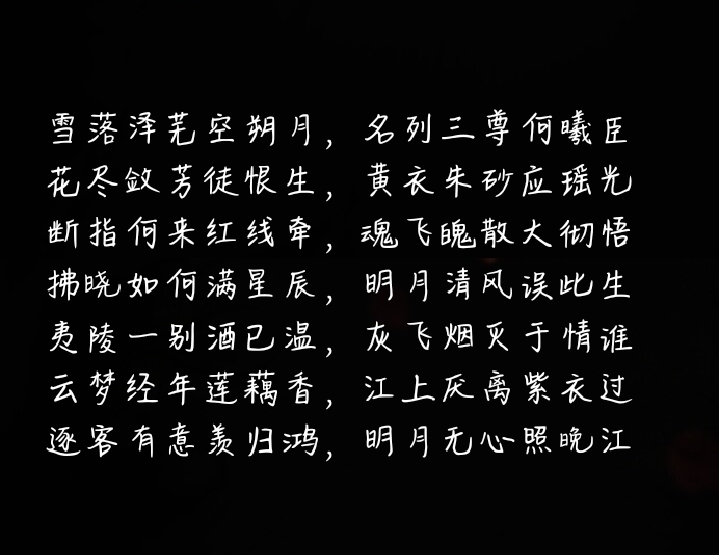 雪落泽芜空朔月，名列三尊何曦臣
花尽敛芳徒恨生，黄衣朱砂应瑶光
断指何来红线牵，魂飞魄散大彻悟
拂晓如何满星辰，明月清风误此生
夷陵一别酒已温，灰飞烟灭于情谁
云梦经年莲藕香，江上厌离紫衣过
逐客有意羡归鸿，明月无心照晚江